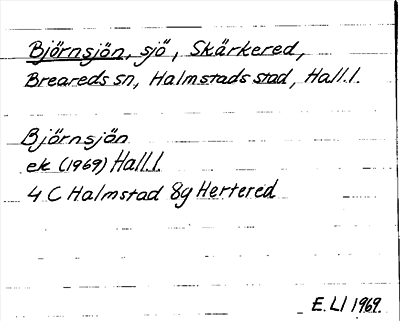 Björnsjön, sjö, Skärkered,
Breareds sn, Halmstads stad, Hall.l.
Björnsjön
ek (1969) Hall.l.
4 C Halmstad 8g Hertered
E. Ll 1969.